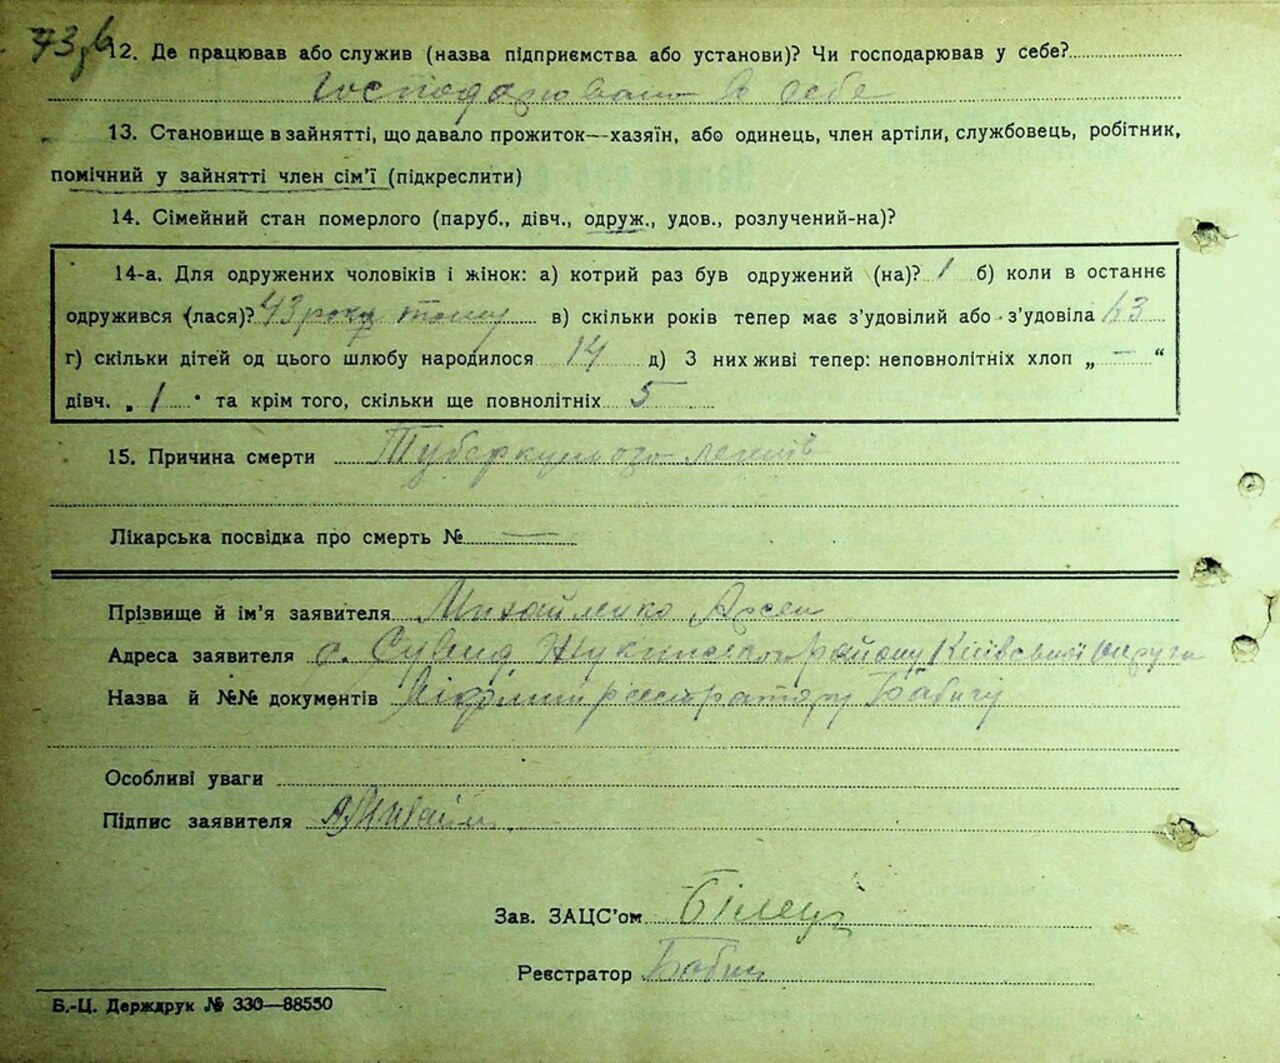 73 зв
12. Де працював або служив (назва підприємства або установи)? Чи господарював у себе?
Господарювала в себе
13. Становище в зайнятті, що давало прожиток—хазяїн, або одинець, член артіли, службовець, робітник,
помічний у зайнятті член сім'ї (підкреслити)
14. Сімейний стан померлого (паруб., дівч., одруж., удов., розлучений-на)?
14-а. Для одружених чоловіків і жінок: а) котрий раз був одружений (на)? 1 б) коли в останнє
одружився (лася)? 43 роки тому в) скільки років тепер має з'удовілий або з'удовіла 63
г) скільки дітей од цього шлюбу народилося 14 д) З них живі тепер: неповнолітніх хлоп „ — “
дівч. „ 1 “ та крім того, скільки ще повнолітніх 5
15. Причина смерти Туберкульоз легенів
Лікарська посвідка про смерть № —
Прізвище й ім'я заявителя Михайленко Арсен
Адреса заявителя с. Сувид Жукинського району Київської округи
Назва й №№ документів Відомий реєстратору Бабичу
Особливі уваги
Підпис заявителя
Зав. ЗАЦС'ом
Реєстратор Бабич
Б.-Ц. Держдрук № 330—88550